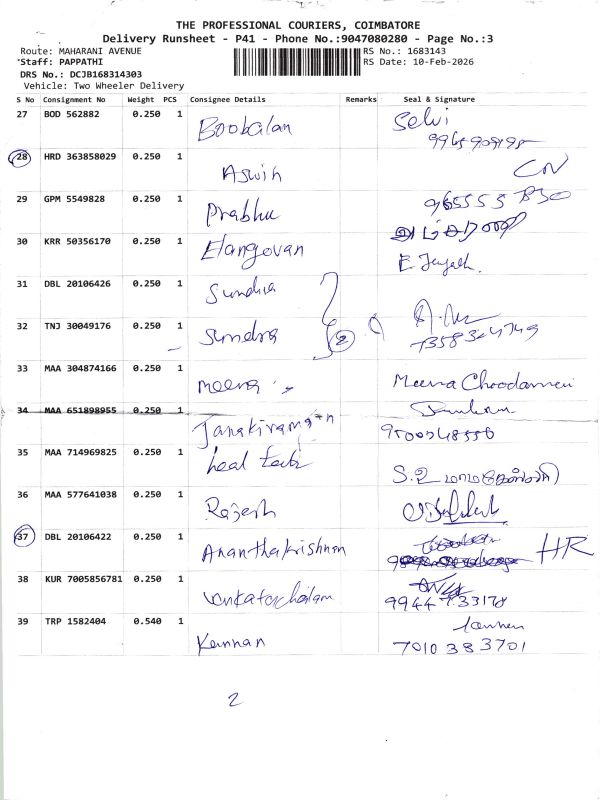 THE PROFESSIONAL COURIERS, COIMBATORE
Delivery Runsheet - P41 - Phone No.:9047080280 - Page No.:3
Route: MAHARANI AVENUE RS No.: 1683143
Staff: PAPPATHI RS Date: 10-Feb-2026
DRS No.: DCJB168314303
Vehicle: Two Wheeler Delivery
S No Consignment No Weight PCS Consignee Details Remarks Seal & Signature
27 BOD 562882 0.250 1 Boobalan Selvi
28 HRD 363858029 0.250 1 Aswin CN
29 GPM 5549828 0.250 1 Prabhu
30 KRR 50356170 0.250 1 Elangovan
31 DBL 20106426 0.250 1
32 TNJ 30049176 0.250 1 2
33 MAA 304874166 0.250 1 meena Meena Choodamani
34 MAA 651898955 0.250 1 Janakiraman
35 MAA 714969825 0.250 1
36 MAA 577641038 0.250 1 Rajesh
37 DBL 20106422 0.250 1 Ananthakrishnan HR
38 KUR 7005856781 0.250 1 Venkatachalam
9944733178
39 TRP 1582404 0.540 1 Kannan
7010383701
2